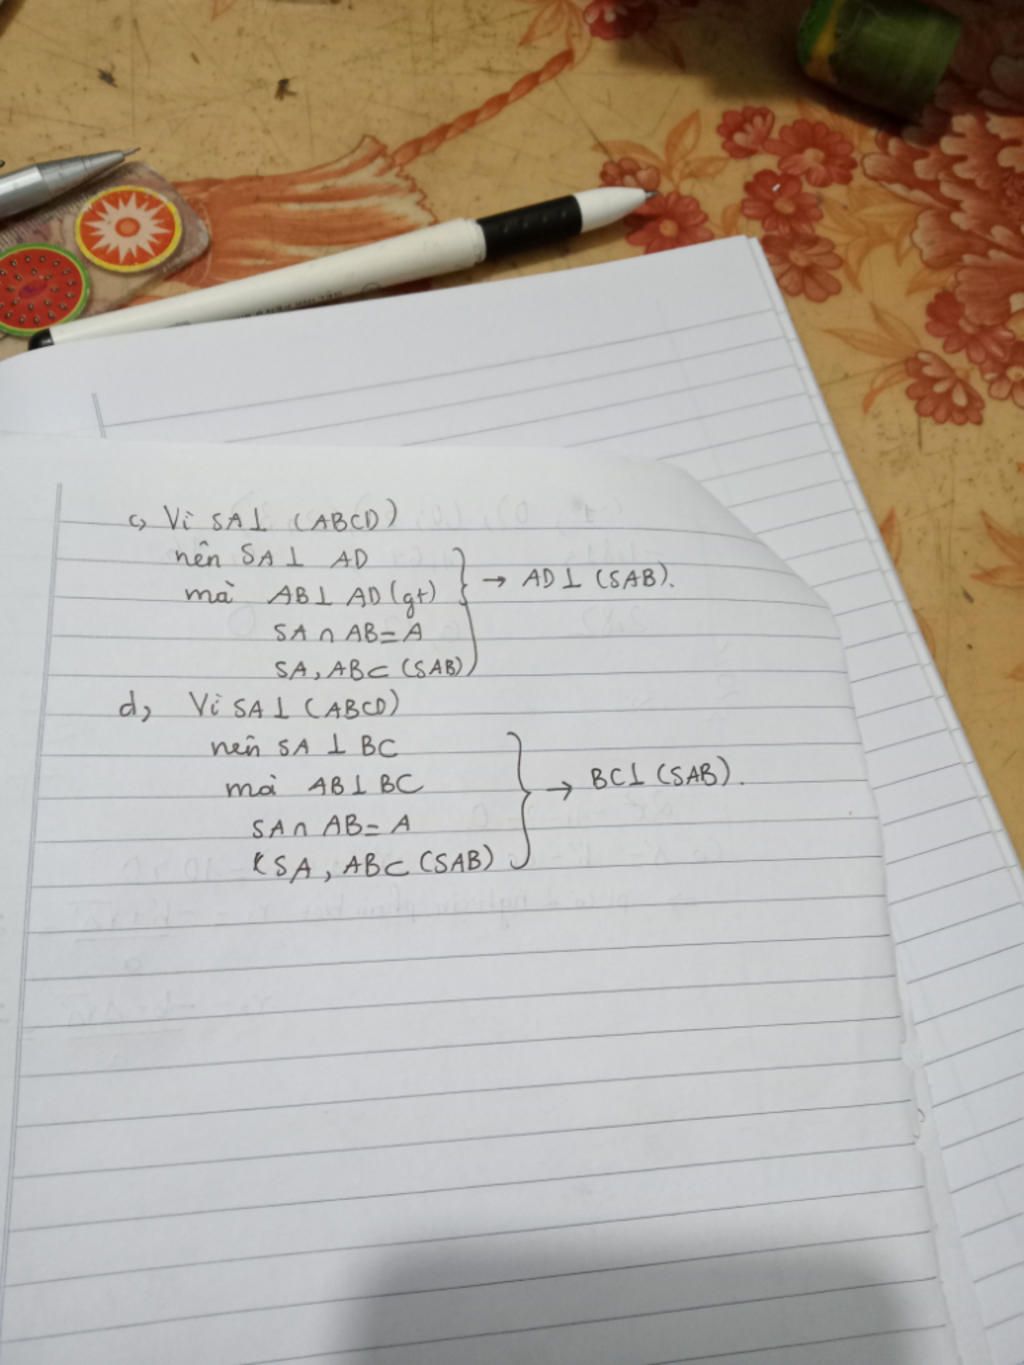 c, Vì SA⊥ (ABCD)
nên SA⊥ AD
mà AB⊥ AD (gt) → AD⊥ (SAB).
SA ∩ AB = A
SA, AB⊂ (SAB)
d, Vì SA⊥ (ABCD)
nên SA ⊥ BC
mà AB⊥ BC → BC⊥ (SAB).
SA∩ AB= A
SA, AB⊂ (SAB)